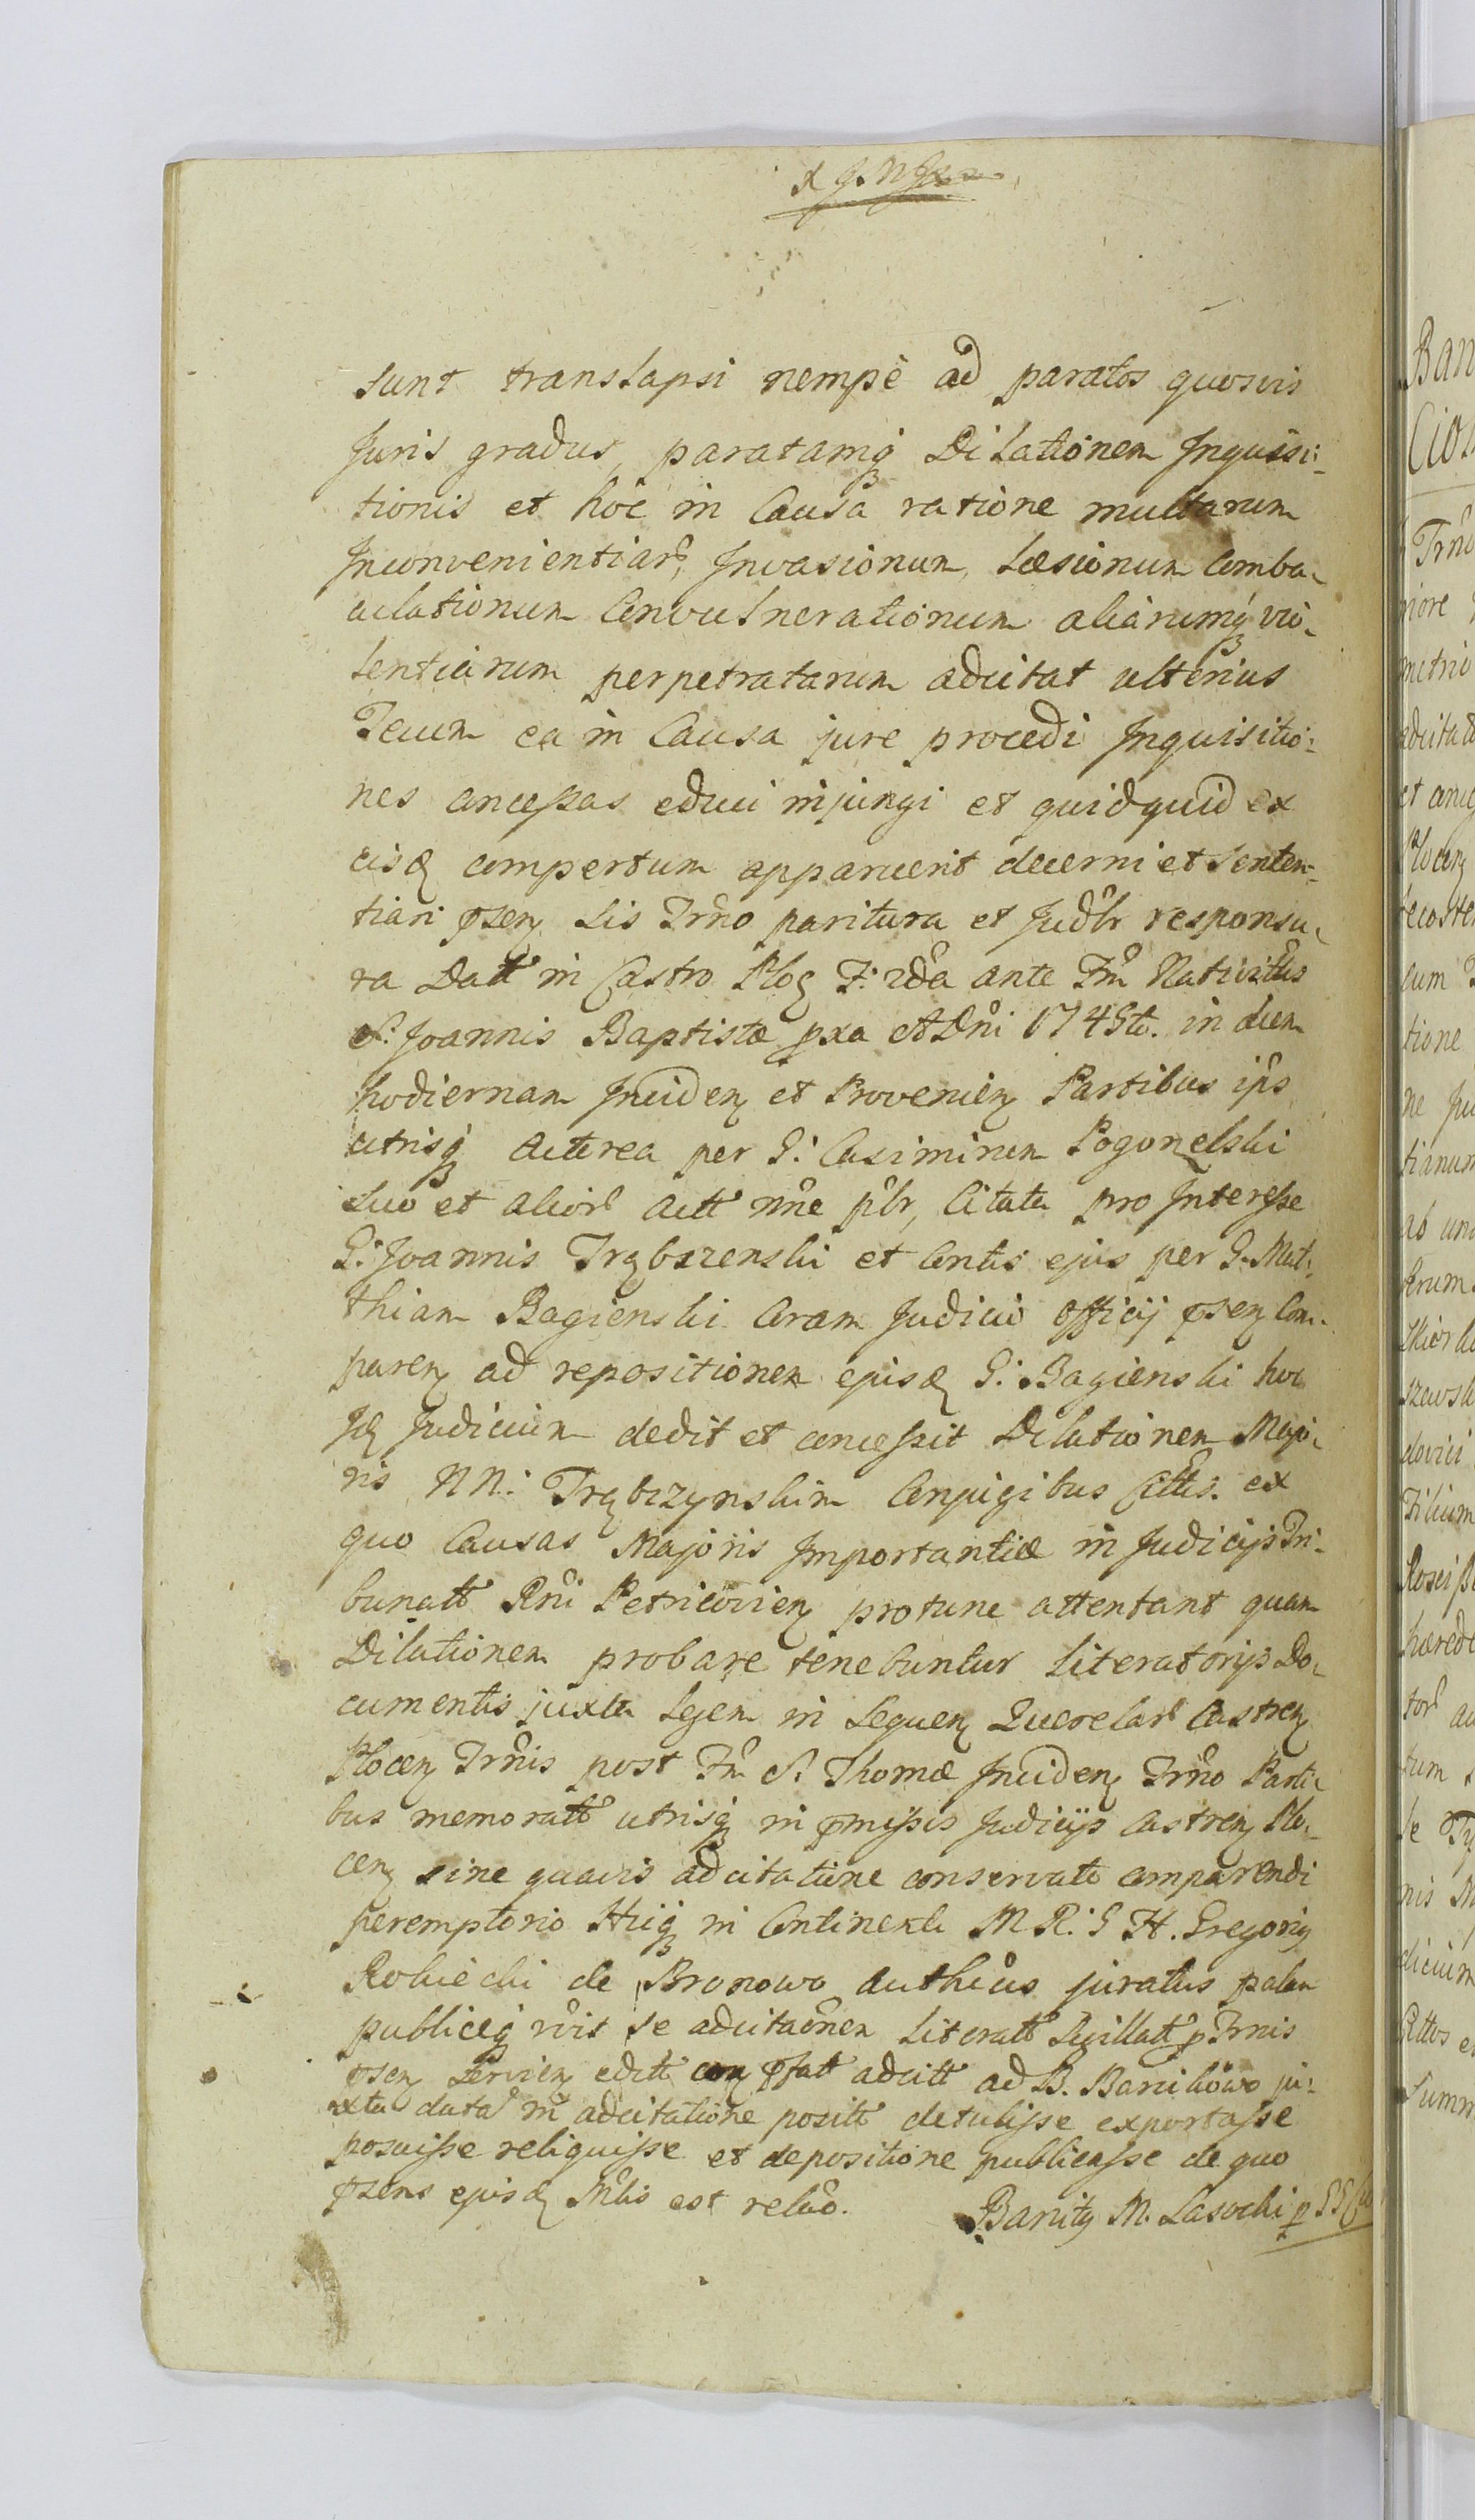 sunt translapsi nempè ad paratos quosvis
Juris gradus, paratamq Dilationem Inquisi:
tionis et hoc in Causa ratione multarum
Inconvenientiar, Invasionum, Læsionum Comba-
culationum Convulnerationum aliarumq vio-
lentiarum perpetratarum adcitat ulterius
Tecum ea in Causa jure procedi Inquisitio:
nes concessas educi injungi et quidquid ex
eisd compertum apparuerit decerni et Senten-
tiari psen sis Trno paritura et Judlr responsu-
ra Datt in Castro Ploc F. 2da ante Fm Nativittis
S. Joannis Baptistæ pxa A Dni 174 in diem
hodiernam Inciden et Provenien Partibus ips
utrisq Actorea per G. Casimirum Pogorzelski
suo et alior Actt nne plr, Citata pro Interesse
G. Joannis Trębszenski et Contis ejus per G. Mat:
thiam Bagienski Coram Judicio Officij psen Com-
paren ad repositionem ejusd G. Bagienski hoc
Id Judicium dedit et concessit Dilationem Majo-
ris NN. Trębrzynskim Conjugibus Cittis. ex
quo Causas Majoris Importantiæ in Judicijs Tri-
bunatt Rni Petricovien protunc attentant quam
Dilationem probare tenebuntur Literatorijs Do-
cumentis juxta legem in Sequen Querelar Castren
Plocen Trnis post Fm S. Thomæ Inciden Trno Parti-
bus memoratt utrisq in pmissis Judicijs Castren Plo-
cen sine quavis adcitatione conservato comparendi
peremptorio Huiq in Continenti M R. G H. Gregorig
Robiecki de Bronowo authcus juratus palam
publiceq rvit se adcitaonem Literatt Sigillatt p Trnis
psen Servien editt pfatt adcitt ad B. Barcikowo ju:
xta data in adcitatione positt detulisse exportasse
posuisse reliquisse et depositione publicasse de quo
psens ejusd Mlis est relao. Banitg M. Lasocki p